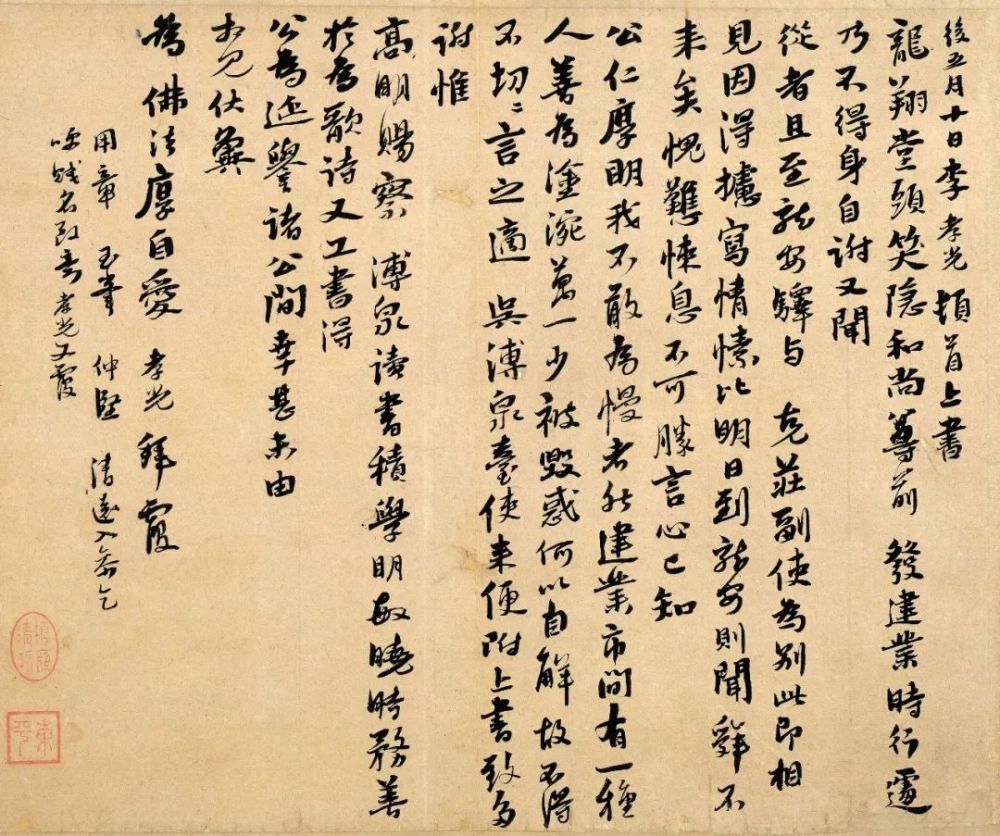 後五月十日李孝光頓首上書
龍翔堂頭笑隱和尚尊前 發建業時行遽
乃不得身自謝又聞
從者且至龍安驛與 克莊副使為別此即相
見因得攄寫情愫比明日到龍安則聞舜不
来矣愧戁悚息不可勝言心已知
公仁厚明我不敢為慢者然建業市間有一種
人善為塗涴萬一少被毀惑何以自解故不得
不切〻言之適 吳溥泉臺使来便附上書致多
謝惟
高明賜察 溥泉讀書積學明敏曉時務善
於為歌詩又工書得
公為延譽諸公間幸甚未由
相見伏冀
為佛法厚自愛 孝光拜覆
用章 玉章 仲堅 清遠入命乞
唤賤名致意孝光又覆
東平